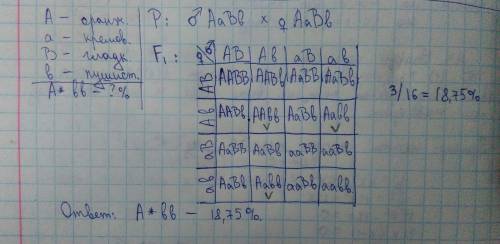 А – оранж.
а – кремов.
В – гладк.
в – пушист.
А* вв – ?%
Р: ♂ АаВв × ♀ АаВв
F₁:
♀ ♂ АВ Ав аВ ав
АВ ААВВ ААВв АаВВ АаВв
Ав ААВв ААвв АаВв Аавв
аВ АаВВ АаВв ааВВ ааВв
ав АаВв Аавв ааВв аавв
3/16 = 18,75%
Ответ: А* вв – 18,75%.